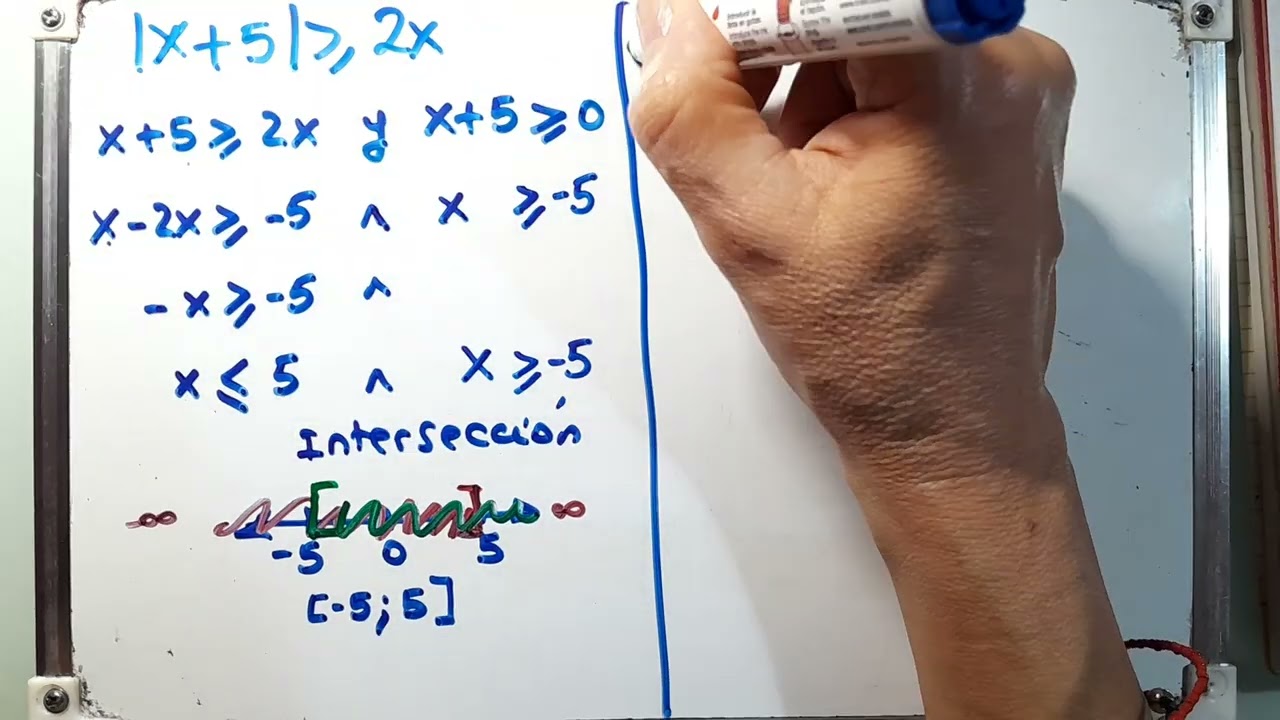 |x+5|≥2x
x+5≥2x y x+5≥0
x-2x≥-5 ∧ x ≥-5
-x≥-5 ∧
x≤5 ∧ x≥-5
Intersección
-∞ [ ] ∞
-5 0 5
[-5;5]